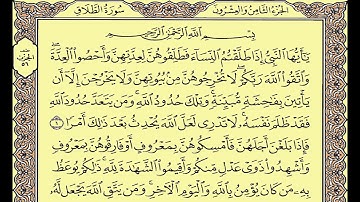 الجزء الثامن والعشرون
سورة الطلاق
بِسْمِ ٱللَّهِ ٱلرَّحْمَٰنِ ٱلرَّحِيمِ
يَٰٓأَيُّهَا ٱلنَّبِىُّ إِذَا طَلَّقْتُمُ ٱلنِّسَآءَ فَطَلِّقُوهُنَّ لِعِدَّتِهِنَّ وَأَحْصُوا۟ ٱلْعِدَّةَ
وَٱتَّقُوا۟ ٱللَّهَ رَبَّكُمْ لَا تُخْرِجُوهُنَّ مِنۢ بُيُوتِهِنَّ وَلَا يَخْرُجْنَ إِلَّآ أَن
يَأْتِينَ بِفَٰحِشَةٍ مُّبَيِّنَةٍ وَتِلْكَ حُدُودُ ٱللَّهِ وَمَن يَتَعَدَّ حُدُودَ ٱللَّهِ
فَقَدْ ظَلَمَ نَفْسَهُۥ لَا تَدْرِى لَعَلَّ ٱللَّهَ يُحْدِثُ بَعْدَ ذَٰلِكَ أَمْرًا ١
فَإِذَا بَلَغْنَ أَجَلَهُنَّ فَأَمْسِكُوهُنَّ بِمَعْرُوفٍ أَوْ فَارِقُوهُنَّ بِمَعْرُوفٍ
وَأَشْهِدُوا۟ ذَوَىْ عَدْلٍ مِّنكُمْ وَأَقِيمُوا۟ ٱلشَّهَٰدَةَ لِلَّهِ ذَٰلِكُمْ يُوعَظُ
بِهِۦ مَن كَانَ يُؤْمِنُ بِٱللَّهِ وَٱلْيَوْمِ ٱلْـَٔاخِرِ وَمَن يَتَّقِ ٱللَّهَ يَجْعَل لَّهُۥ